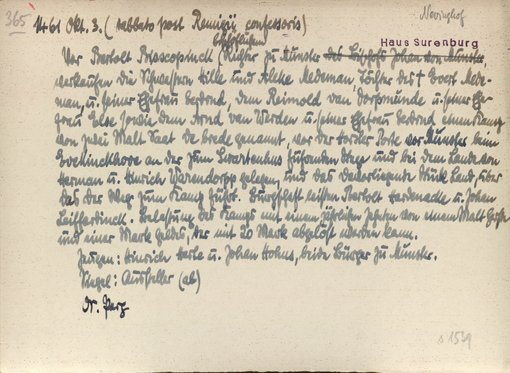 365
Nevinghof
1461 Okt. 3. (sabbato post Remigii confessoris)
bischöflichem
Haus Surenburg
Vor Bertolt Bisscopinck (Richter zu Münster des Bischofs Johan von Münster
verkaufen die Schwestern Hille und Aleke Medeman Töchter des † Evert Mede-
man, u. seiner Ehefrau Gertrud, dem Reimold van Dorpmunde u. seiner Ehe-
frau Else sowie dem Arnd van Werden u. seiner Ehefrau Gertrud einen Kamp
von zwei Malt Saat de brede genannt, vor der Porte vor Münster beim
an der zum führenden Wege und bei dem Lande von
Herman u. Hinrich Warendorpp gelegen, und das Stück Land, über
das der Weg zum Kamp führt. Bürgschaft leisten Bertolt Hardenacke u. Johan
Belastung des Kamps mit einem jährlichen von einem Malt Gerste
und einer Mark Geldes, der mit 20 Mark abgelöst werden kann.
Zeugen: Hinrich u. Johan Hohus, beide Bürger zu Münster.
Siegel: Aussteller (ab)
Or. Perg
s 1539